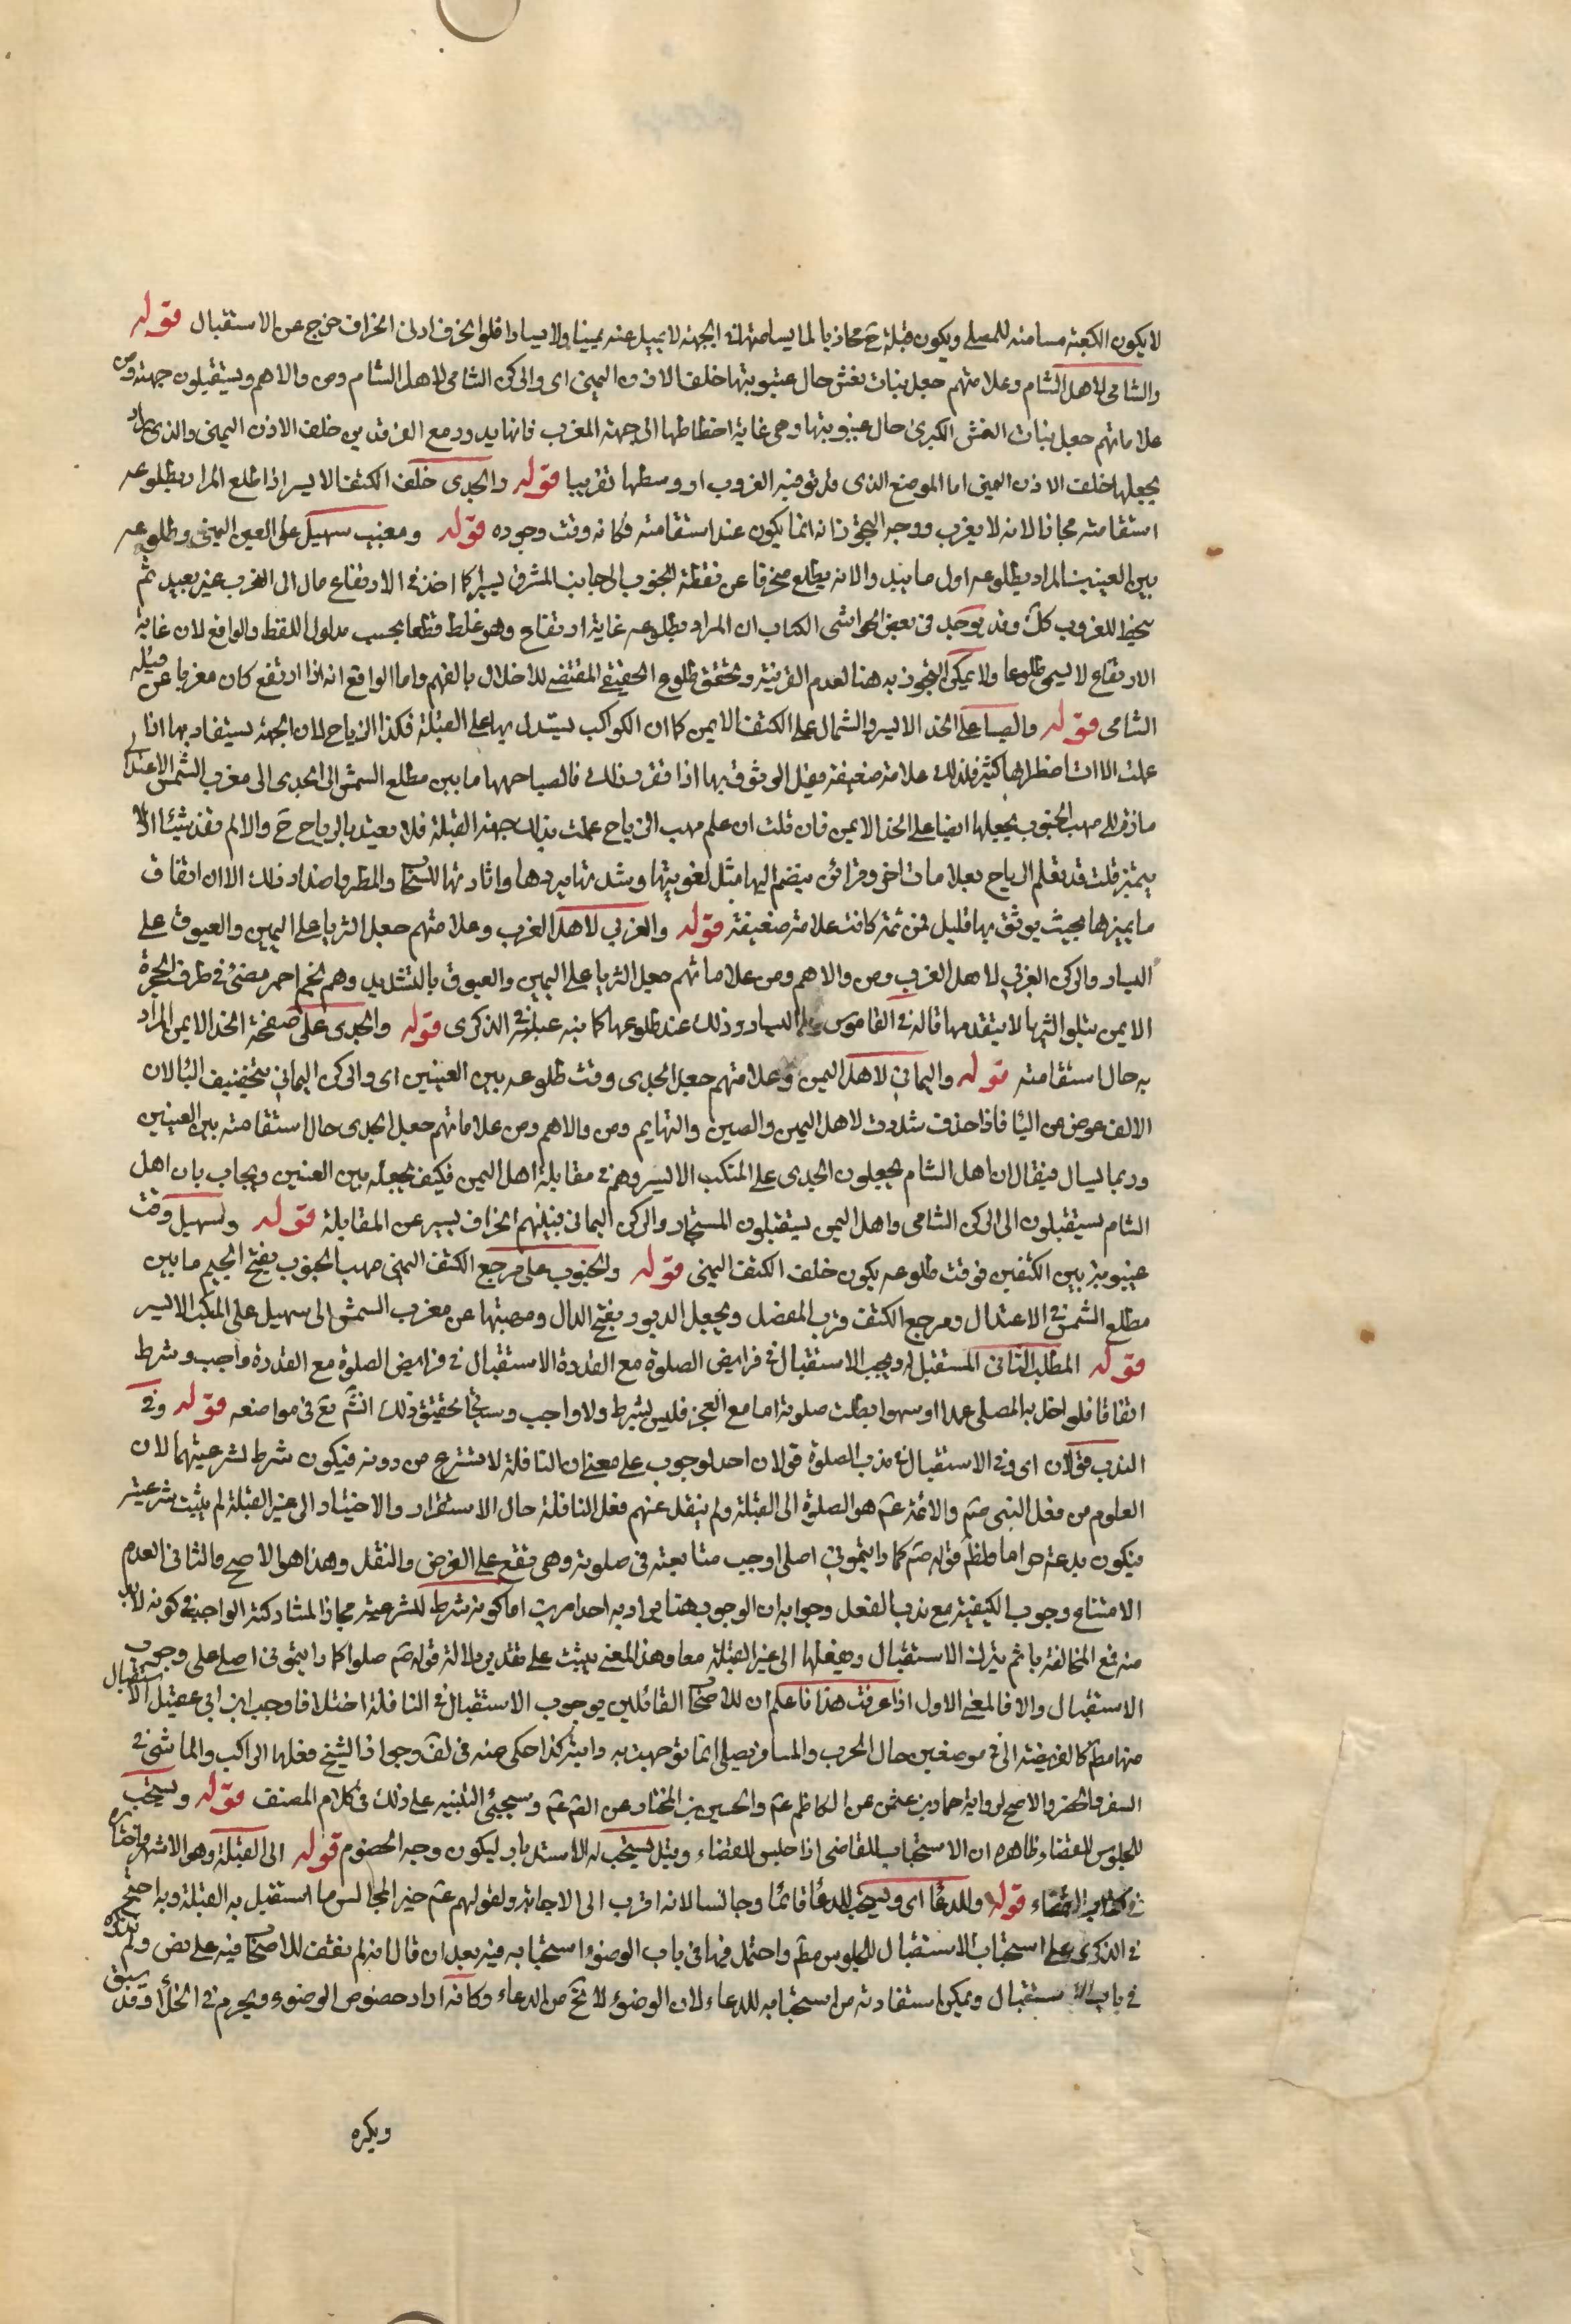 لا يكون الكعبة مسامتة للمصلي ويكون قبلة ح محاذيا لما يسامتها في الجهة لا يميل عنه يمينا ولا يسارا فلو انحرف ادنى انحراف خرج عن الاستقبال قوله
والشامي لاهل الشام وعلامتهم جعل بنات نعش حال غيبوبتها خلف الاذن اليمنى اى والركن الشامي لاهل الشام ومن والاهم ويستقبلون جهته ومن
علاماتهم جعل بنات النعش الكبرى حال غيبوبتها وهي غاية انحطاطها الى جهة المغرب فانها يدور مع الفرقدين خلف الاذن اليمنى والذي
يجعلها خلف الاذن اليمنى اما الموضع الذى فيه الغروب او وسطها تقريبا قوله والجدى خلف الكتف الايسر اذا طلع المراد بطلوعه
استقامته مجازا لانه لا يغرب ووجه التجوز انه انما يكون عند استقامته فكانه وقت وجوده قوله ومغيب سهيل على العين اليمنى وطلوعه
بين العينين المراد بطلوعه اول ما يبدو لانه يطلع منحرفا عن نقطة الجنوب الى جانب المشرق يسيرا كلما اخذ في الارتفاع مال الى المغرب غير بعيد ثم
ينحط للغروب كك وقد يوجد فى بعض الحواشى الكتاب ان المراد بطلوعه غاية ارتفاعه وهو غلط قطعا بحسب مدلول اللفظ والواقع لان غاية
الارتفاع لا يسمى طلوعا ولا يمكن التجوز به هنا لعدم القرينة وتحقق طلوع الحقيقى المقتضى للاخلال بالفهم واما الواقع انه اذا ارتفع كان مغربا عن قبلة
الشامى قوله والصبا على الخد الايسر والشمال على الكتف الايمن كما ان الكواكب يستدل بها على القبلة فكذا الرياح لان الجهة يستفاد بها اذا
علمت الا ان اضطرابها كثير فلذلك علامة ضعيفة فيقل الوثوق بها اذا تقرر ذلك فالصبا مهبها ما بين مطلع الشمس الى الجدى الى مغرب الشمس الاعتدال
الى مهب الجنوب يجعلها ايضا على الخد الايمن فان قلت ان علم مهب الرياح علمت بذلك جهة القبلة فلا يعتد بالرياح ح والا لم يفد شيئا
يتميز قلت قد تعلم الرياح بعلامات اخر وقرائن ينضم اليها مثل لغوبتها وشدتها وبردها واثارتها للسحاب والمطر واضداد ذلك الا ان اتفاق
ما يميزها بحيث يوثق بها قليل فمن ثمة كانت علامة ضعيفة قوله والغربي لاهل المغرب وعلامتهم جعل الثريا على اليمين والعيوق على
اليسار والركن الغربي لاهل المغرب ومن والاهم ومن علاماتهم جعل الثريا على اليمين والعيوق بالتشديد وهو نجم احمر مضئ في طرف المجرة
الايمن يتلو الثريا لا يتقدمها قاله في القاموس على اليسار وذلك عند طلوعها كما نبه عليه في الذكرى قوله والجدى على صفحة الخد الايمن المراد
به حال استقامته قوله واليماني لاهل اليمن وعلامتهم جعل الجدى وقت طلوعه بين العينين اى والركن اليماني بتخفيف اليا لان
الالف عوض من اليا فاذا حذفت شددت لاهل اليمن والصين والتهايم ومن والاهم ومن علاماتهم جعل الجدى حال استقامته بين العينين
وربما يسال فيقال ان اهل الشام يجعلون الجدى على المنكب الايسر وهم في مقابلة اهل اليمن فكيف يجعله بين العينين ويجاب بان اهل
الشام يستقبلون الى الركن الشامى واهل اليمن يستقبلون المستجار والركن اليماني فبينهم انحراف يسير عن المقابلة قوله وسهيل وقت
غيبوبته بين الكتفين فوقت طلوعه يكون خلف الكتف اليمنى قوله والجنوب على مرجع الكتف اليمنى مهب الجنوب بفتح الجيم ما بين
مطلع الشمس في الاعتدال ومرجع الكتف قرب المفصل ويجعل الدبور بفتح الدال ومهبتها من مغرب الشمس الى سهيل على المنكب الايسر
قوله المطلب الثاني المستقبل له ويجب الاستقبال في فرايض الصلوة مع القدرة الاستقبال في فرايض الصلوة مع القدرة واجب وشرط
اتفاقا فلو اخل به المصلى عمدا او سهوا بطلت صلوته اما مع العجز فليس بشرط ولا واجب وسيأتي تحقيق ذلك انش تع فى مواضعه قوله وفي
الندب قولان اى وفي الاستقبال في ندب الصلوة قولان احد لوجوب على معنى ان النافلة لا تشرع من دونه فيكون شرطا لشرعيتهما لان
العلوم من فعل النبى صم والائمة عم هو الصلوة الى القبلة ولم ينقل عنهم فعل النافلة حال الاستقرار والاختيار الى غير القبلة لم يثبت شرعيته
فيكون بدعة حراما ولظم قوله صم كما رايتموني اصلى اوجب متابعته في صلوته وهي تقع على الفرض والنفل وهذا هو الاصح والثانى العدم
الامتناع وجوب الكيفية مع ندب الفعل وجوابه ان الوجوب هنا يراد به احد امرين اما كونه شرط للشرعية مجازا لمشاركته الواجب في كونه لابد
منه فمع المخالفة ياثم بترك الاستقبال وفعلها الى غير القبلة معا وهذا المعنى يثبت على تقدير دلالة قوله صم صلوا كما رايتموني اصلي على وجوب
الاستقبال والا فالمعنى الاول اذا عرفت هذا فاعلم ان للاصحاب القائلين بوجوب الاستقبال في النافلة اختلافا فاوجب ابن ابي عقيل الاستقبال
فيها مطم كالفريضة الا في موضعين حال الحرب والمسافر يصلى اينما توجهت به دابته كذا حكى عنه في لف وجواز الشيخ فعلها الراكب والماشى في
السفر والحضر والاصح لرواية حماد بن عثمن عن الكاظم عم والحسين بن المختار عن القم عم وسيجيئ التنبيه على ذلك في كلام المصنف قوله ويستحب
للجلوس للقضاء وظاهره ان الاستحباب للقاضى اذا جلس للقضاء وقيل يستحب له الاستدبار ليكون وجه الخصوم قوله الى القبلة وهو الاشهر
في كتاب القضاء قوله وللدعا اى ويستحب للدعا قائما وجالسا لانه اقرب الى الاجابة ولقولهم عم خير المجالس ما استقبل به القبلة وبه احتج
في الذكرى على استحباب الاستقبال للجلوس مطم واحتمل فيها فى باب الوضوء استحبابه فيه بعد ان قال انه لم يقف للاصحاب فيه على نص ولم يذكره
في باب الاستقبال ويمكن استفادته من استحبابه للدعاء لان الوضوء لا يخ من الدعاء وكانه اراد خصوص الوضوء ويحرم في الخلا وقد سبق
ويكره